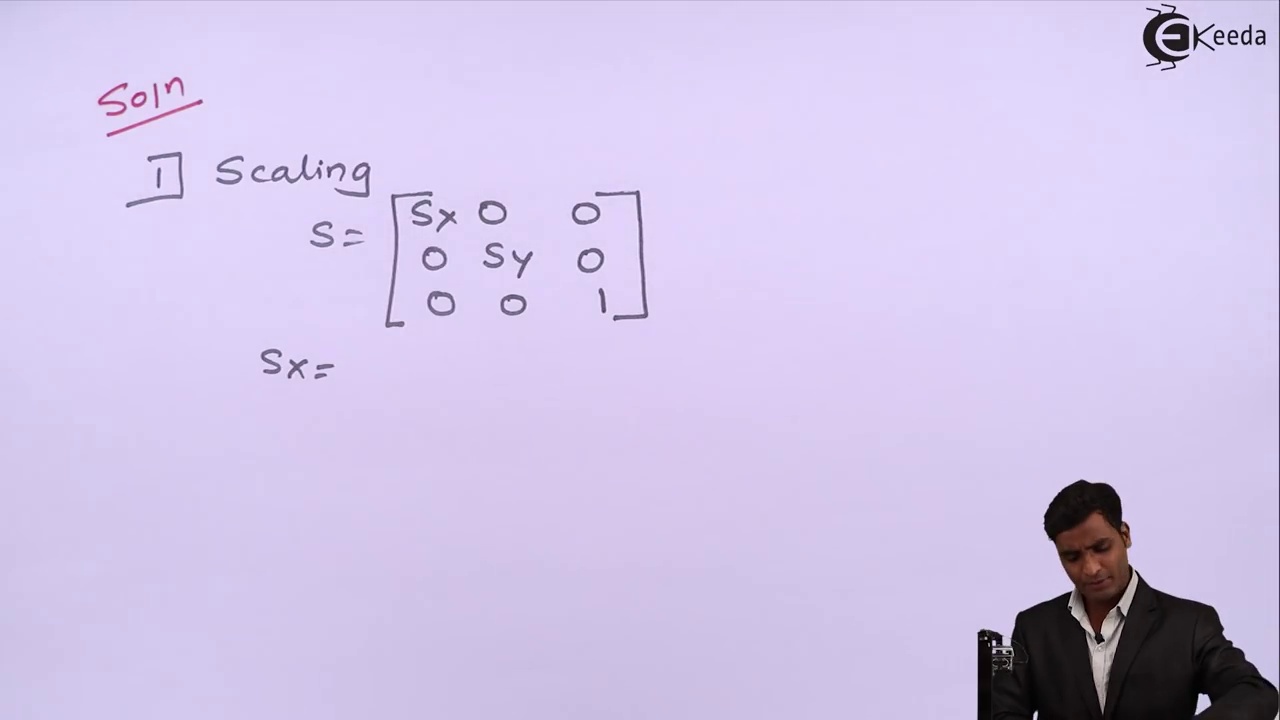 Keeda
Soln
1 Scaling
S = [Sx 0 0
0 Sy 0
0 0 1]
Sx =